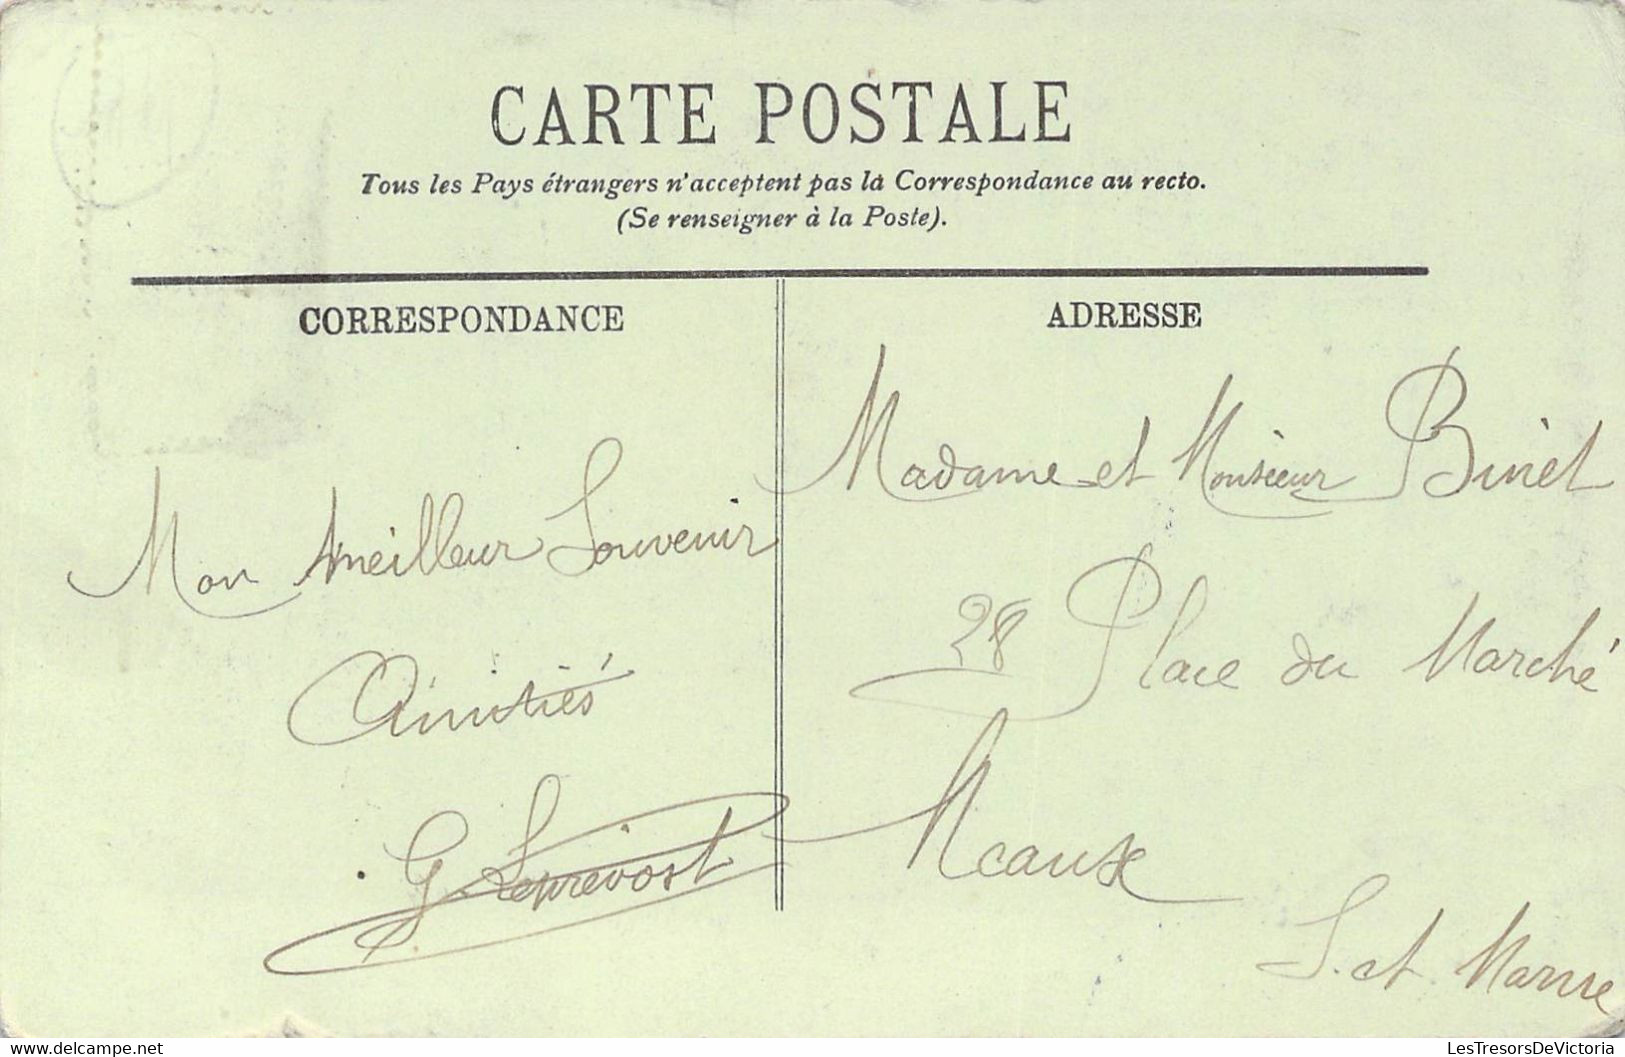 CARTE POSTALE
Tous les Pays étrangers n'acceptent pas la Correspondance au recto.
(Se renseigner à la Poste).
CORRESPONDANCE
Mon meilleur Souvenir
Amitiés
G Leprévost
ADRESSE
Madame et Monsieur Binet
28 Place du Marché
Meaux
S. et Marne
LesTresorsDeVictoria
www.delcampe.net